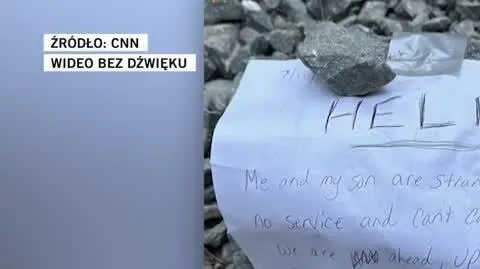 ŹRÓDŁO: CNN
WIDEO BEZ DŹWIĘKU
HEL
Me and my son are stran
no service and cant c
We are ahead, up